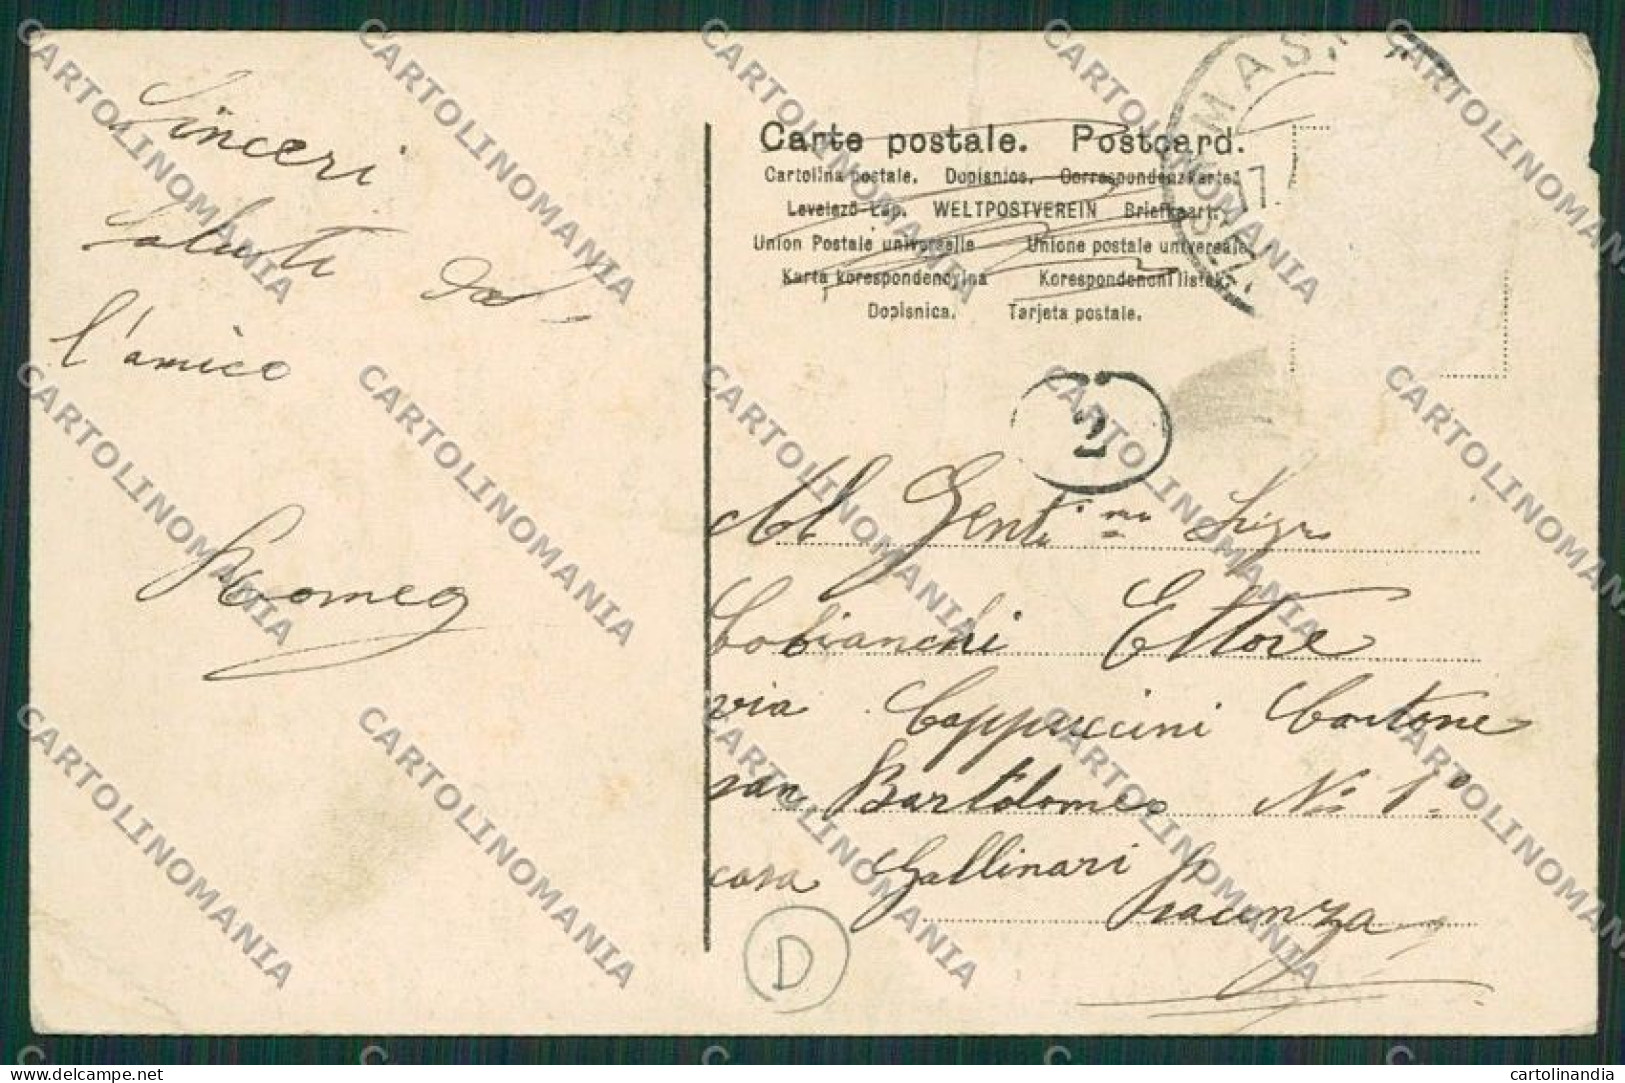 Sinceri
Saluti dal
l'amico
Romeo
Carte postale. Postcard.
Cartolina postale. Dopisnice. Correspondenzkarte.
Levelező-Lap. WELTPOSTVEREIN Briefkaart.
Union Postale universelle Unione postale universale
Karta korespondencyjna Korespondenčni listek.
Dopisnica. Tarjeta postale.
MAS
17
2
Al Gentimo Sigre
Cobianchi Ettore
via Cappuccini Cantone
san Bartolomeo No 1o
casa Gallinari
Piacenza
D
CARTOLINOMANIA
delcampe.net
cartolinandia